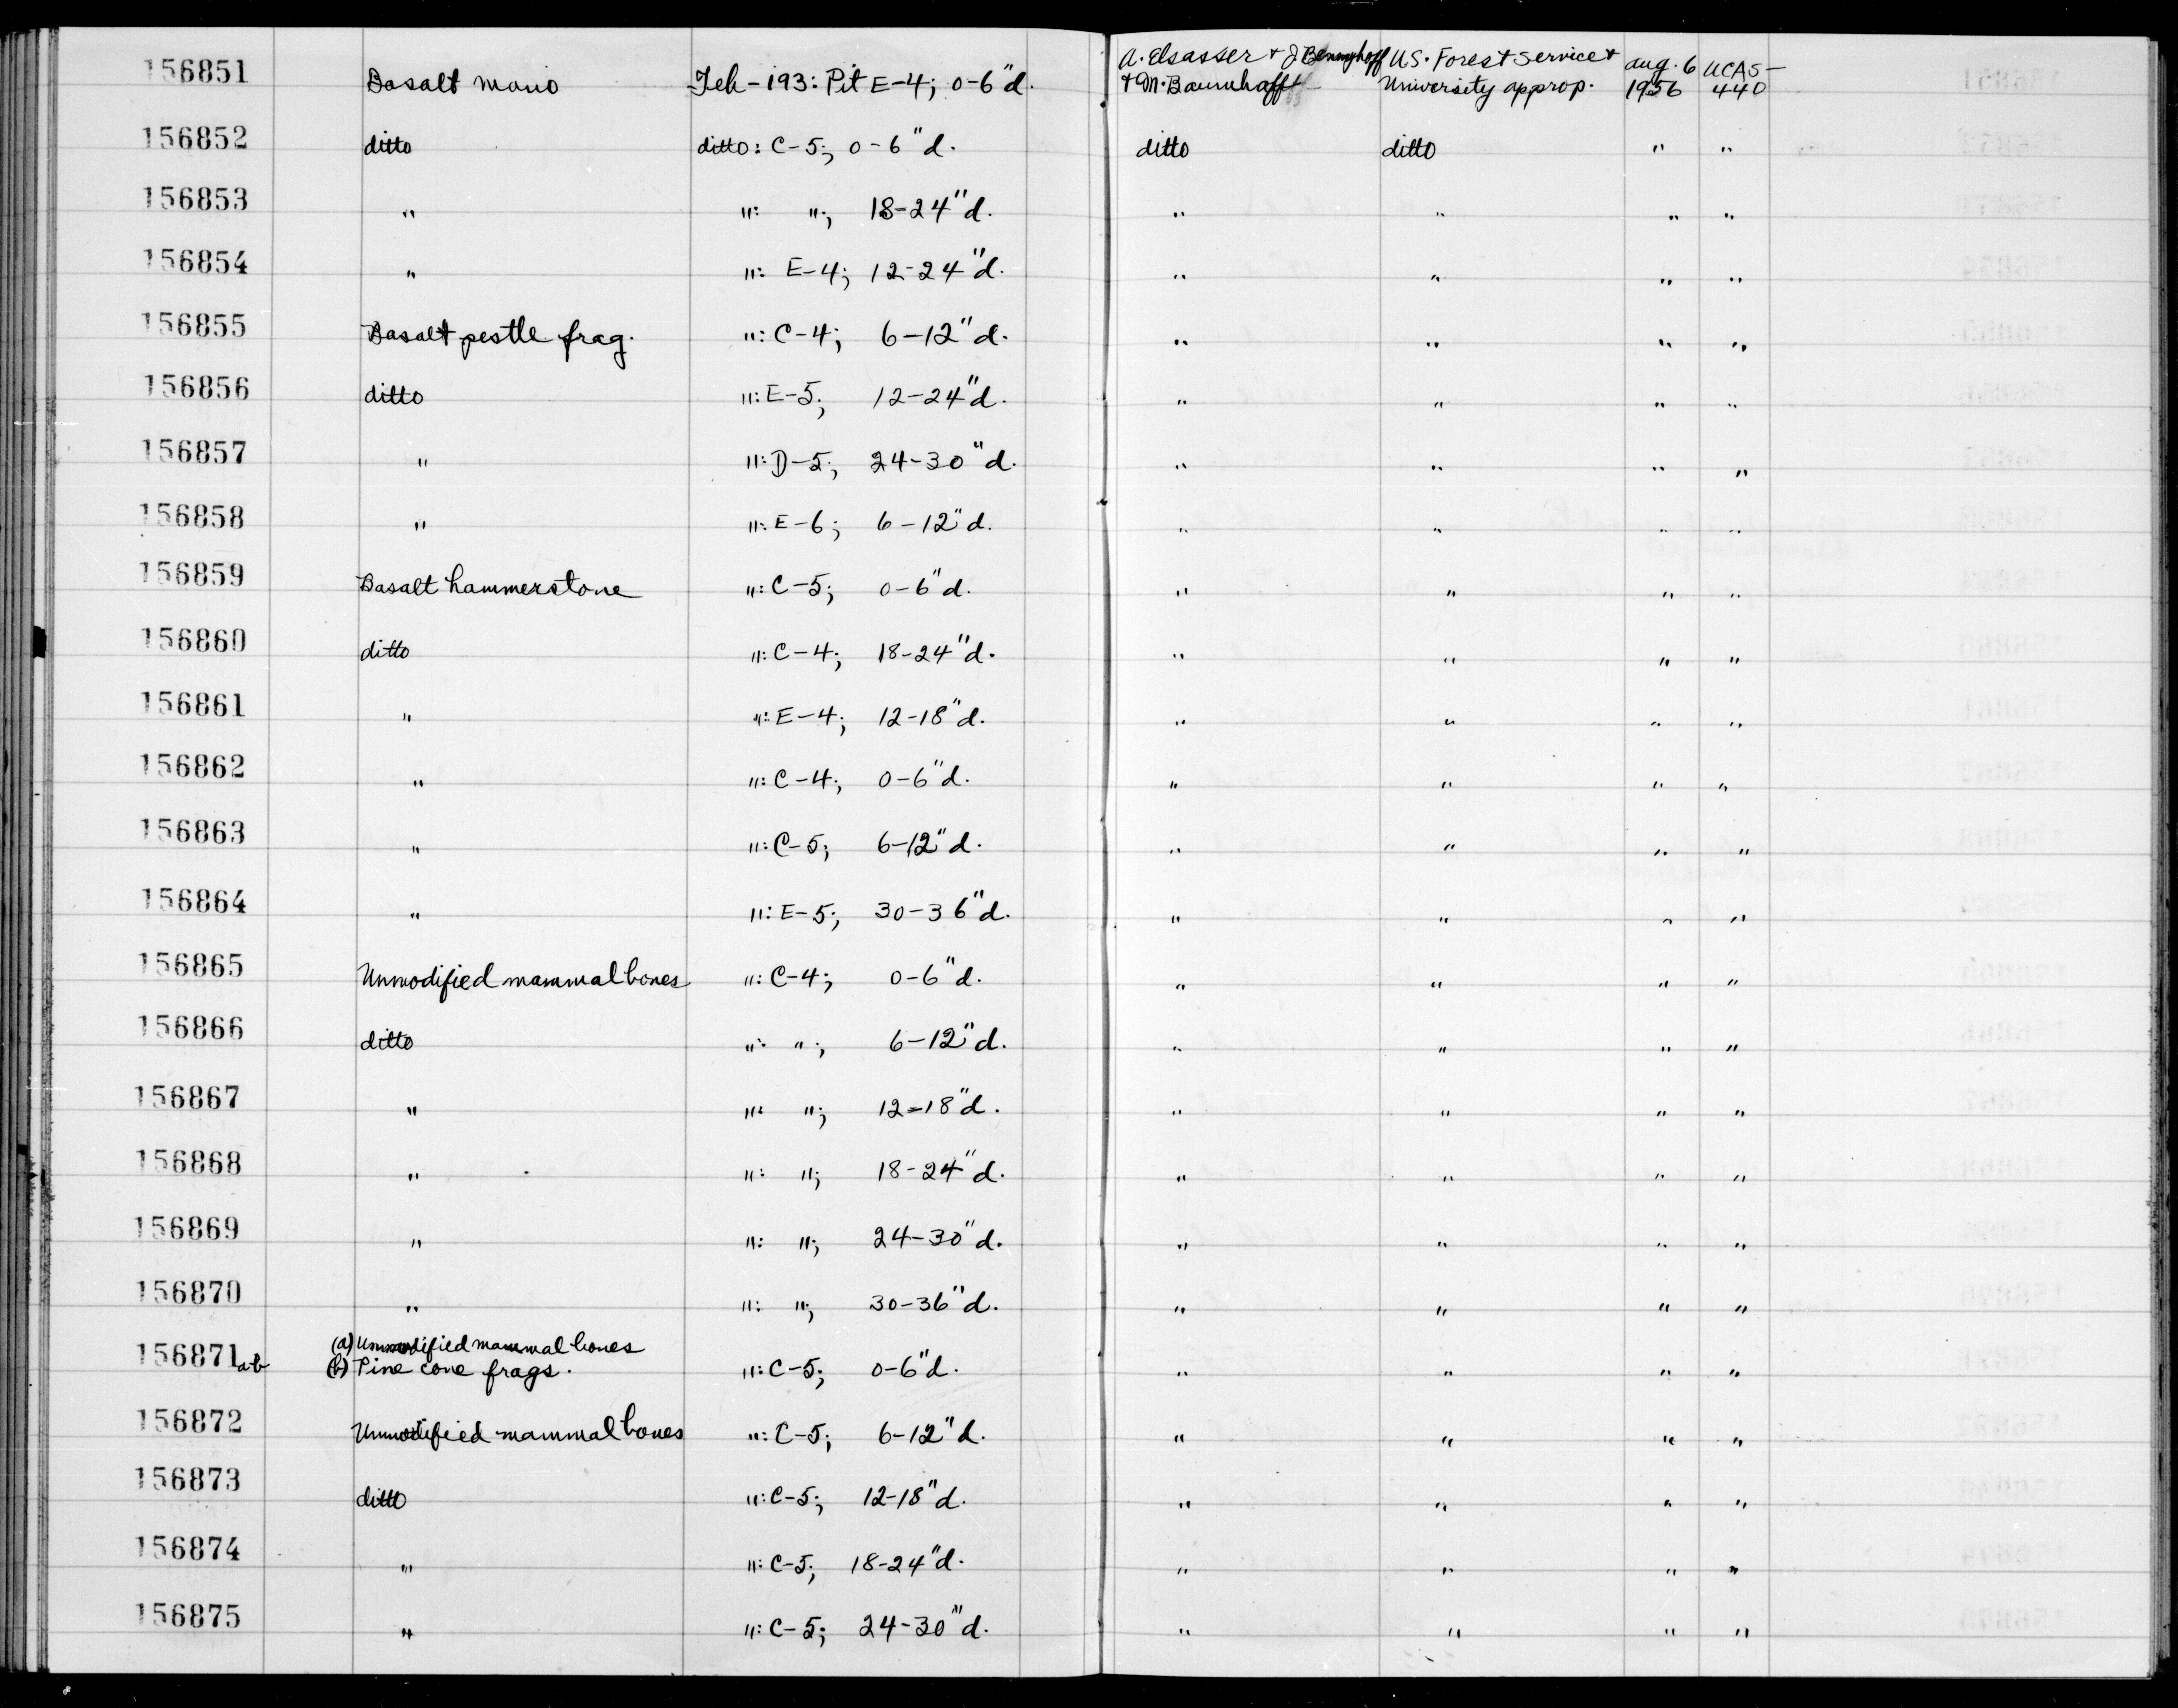 156851 Basalt mano Teh-193: Pit E-4; 0-6"d. A. Elsasser + J Bennyhoff U.S. Forest Service + Aug. 6 UCAS-
+ M. Baumhoff University approp. 1956 440
156852 ditto ditto: C-5; 0-6"d. ditto ditto " "
156853 " ": "; 18-24"d. " " " "
156854 " ": E-4; 12-24"d. " " " "
156855 Basalt pestle frag. ": C-4; 6-12"d. " " " "
156856 ditto ": E-5; 12-24"d. " " " "
156857 " ": D-5; 24-30"d. " " " "
156858 " ": E-6; 6-12"d. " " " "
156859 Basalt hammerstone ": C-5; 0-6"d. " " " "
156860 ditto ": C-4; 18-24"d. " " " "
156861 " ": E-4; 12-18"d. " " " "
156862 " ": C-4; 0-6"d. " " " "
156863 " ": C-5; 6-12"d. " " " "
156864 " ": E-5; 30-36"d. " " " "
156865 Unmodified mammal bones ": C-4; 0-6"d. " " " "
156866 ditto ": "; 6-12"d. " " " "
156867 " ": "; 12-18"d. " " " "
156868 " ": "; 18-24"d. " " " "
156869 " ": "; 24-30"d. " " " "
156870 " ": "; 30-36"d. " " " "
(a) Unmodified mammal bones
156871 a-b (b) Pine cone frags. ": C-5; 0-6"d. " " " "
156872 Unmodified mammal bones ": C-5; 6-12"d. " " " "
156873 ditto ": C-5; 12-18"d. " " " "
156874 " ": C-5; 18-24"d. " " " "
156875 " ": C-5; 24-30"d. " " " "